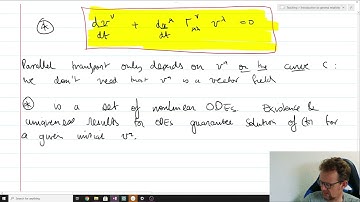 ⊛ dv^ν/dt + dx^μ/dt Γ^ν_μλ v^λ = 0
Parallel transport only depends on v^μ on the curve C :
we don't need that v^μ is a vector field
⊛ is a set of nonlinear ODEs. Existence &
uniqueness results for ODEs guarantee solution of for
a given initial v^μ.